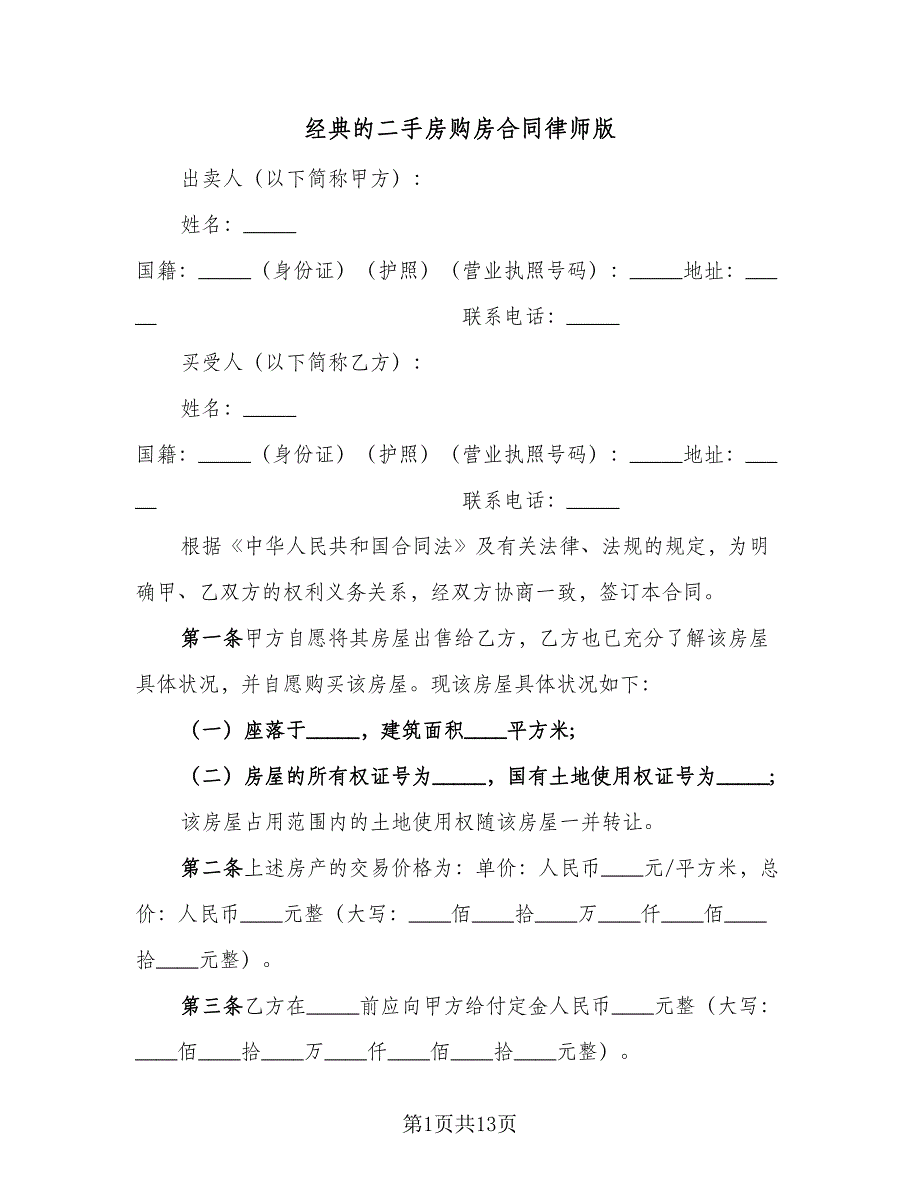 经典的二手房购房合同律师版
出卖人（以下简称甲方）：
姓名：_____
国籍：_____（身份证）（护照）（营业执照号码）：_____地址：___
__ 联系电话：_____
买受人（以下简称乙方）：
姓名：_____
国籍：_____（身份证）（护照）（营业执照号码）：_____地址：___
__ 联系电话：_____
根据《中华人民共和国合同法》及有关法律、法规的规定，为明
确甲、乙双方的权利义务关系，经双方协商一致，签订本合同。
第一条甲方自愿将其房屋出售给乙方，乙方也已充分了解该房屋
具体状况，并自愿购买该房屋。现该房屋具体状况如下：
（一）座落于_____，建筑面积____平方米;
（二）房屋的所有权证号为_____，国有土地使用权证号为_____;
该房屋占用范围内的土地使用权随该房屋一并转让。
第二条上述房产的交易价格为：单价：人民币____元/平方米，总
价：人民币____元整（大写：____佰____拾____万____仟____佰____
拾____元整）。
第三条乙方在_____前应向甲方给付定金人民币____元整（大写：
____佰____拾____万____仟____佰____拾____元整）。
第1页共13页